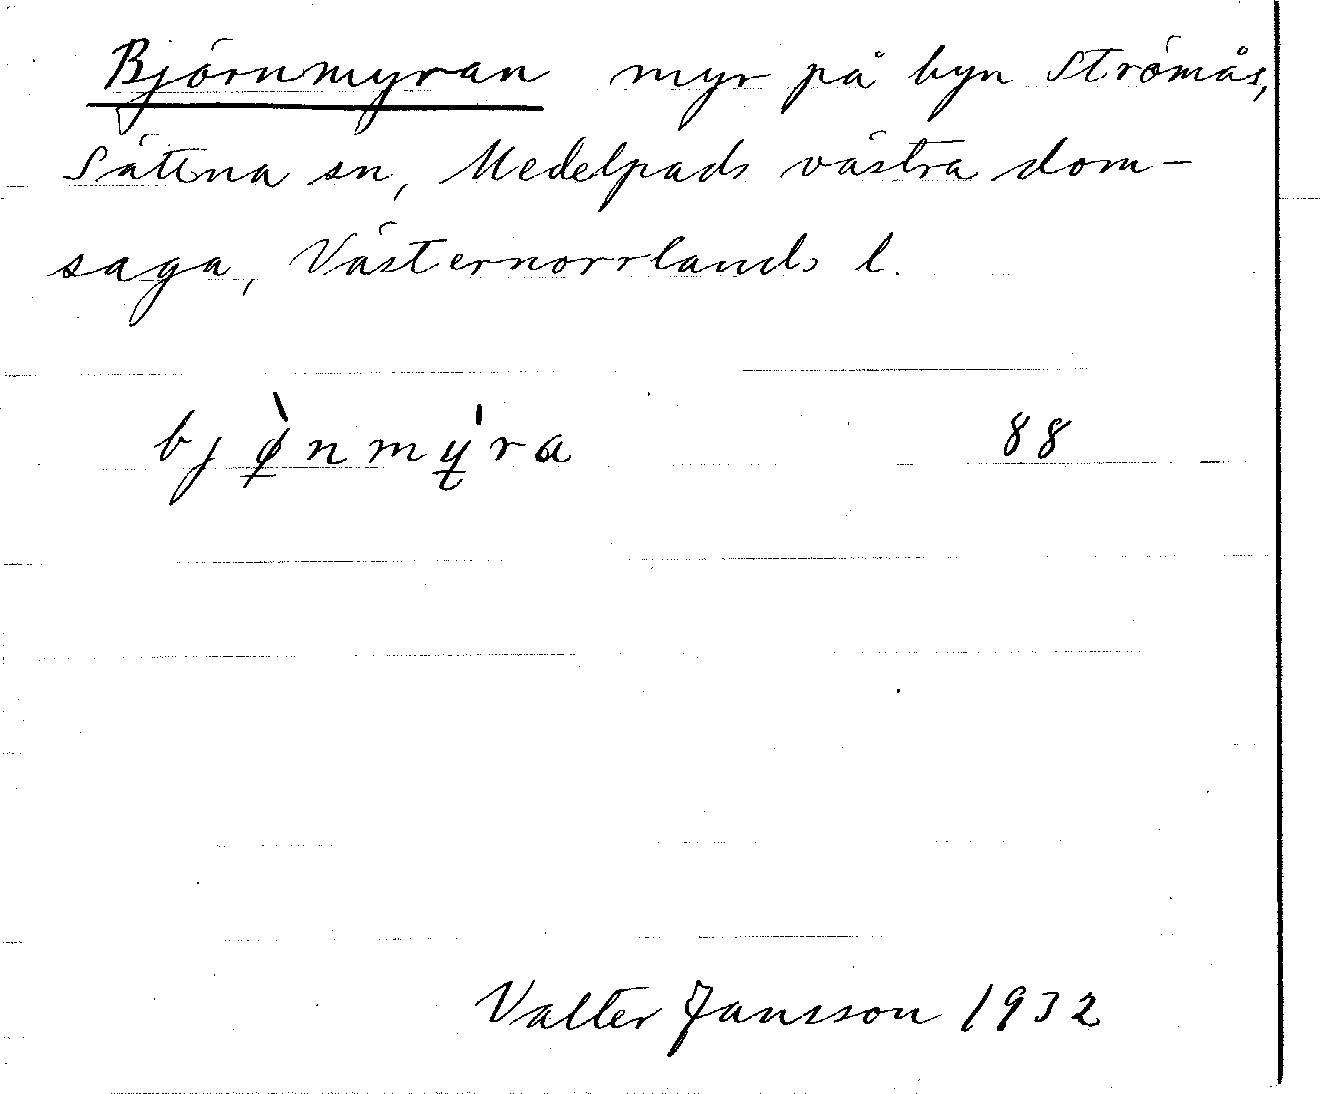 Björnmyran myr på byn Strömås,
Sättna sn, Medelpads västra dom-
saga, Västernorrlands l.
bjø̱̀nmý̱ra 88
Valter Jansson 1932